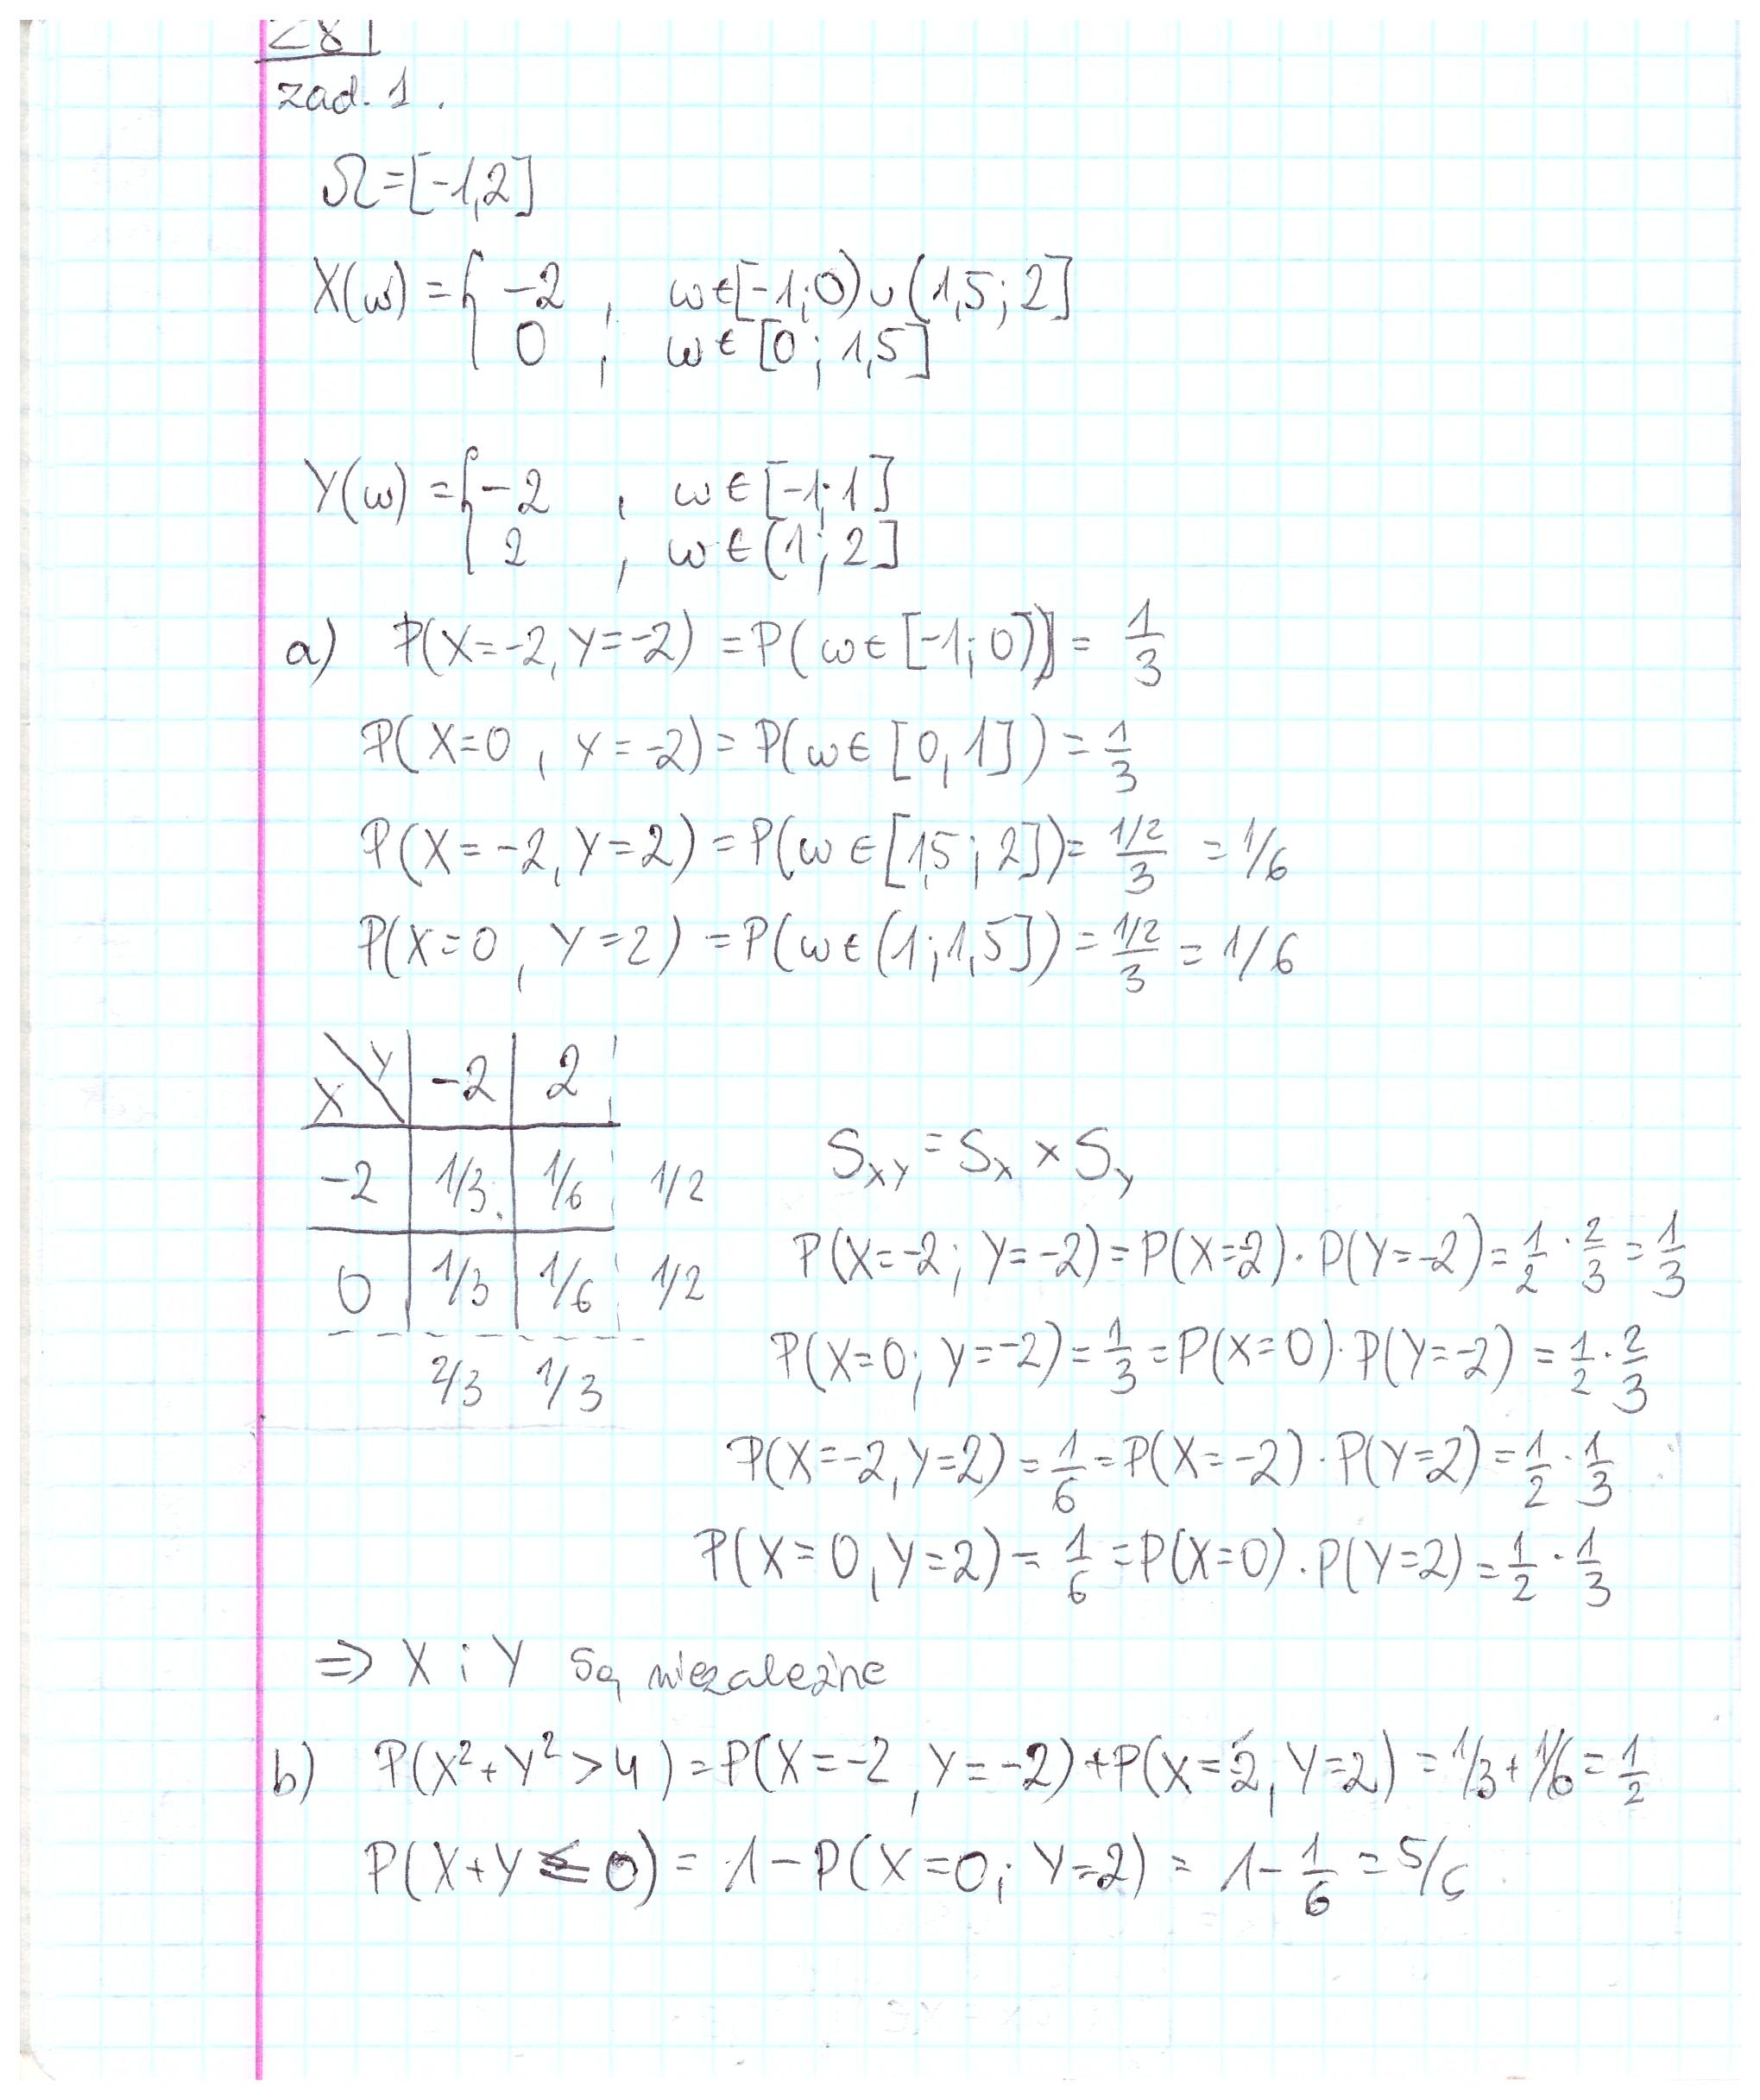 zad. 1.
Ω=[-1,2]
X(ω) = { -2 , ω∈[-1;0)∪(1,5;2]
0 ; ω∈[0;1,5]
Y(ω) = { -2 , ω∈[-1;1]
2 , ω∈(1;2]
a) P(X=-2,Y=-2) = P(ω∈[-1;0)) = 1/3
P(X=0, Y=-2) = P(ω∈[0,1]) = 1/3
P(X=-2,Y=2) = P(ω∈[1,5;2]) = (1/2)/3 = 1/6
P(X=0, Y=2) = P(ω∈(1;1,5]) = (1/2)/3 = 1/6
X\Y | -2 | 2
-2 | 1/3 | 1/6 | 1/2
0 | 1/3 | 1/6 | 1/2
2/3 1/3
S_XY = S_X × S_Y
P(X=-2; Y=-2) = P(X=-2)·P(Y=-2) = 1/2 · 2/3 = 1/3
P(X=0; Y=-2) = 1/3 = P(X=0)·P(Y=-2) = 1/2 · 2/3
P(X=-2,Y=2) = 1/6 = P(X=-2)·P(Y=2) = 1/2 · 1/3
P(X=0,Y=2) = 1/6 = P(X=0)·P(Y=2) = 1/2 · 1/3
⇒ X i Y są niezależne
b) P(X²+Y²>4) = P(X=-2, Y=-2)+P(X=-2, Y=2) = 1/3+1/6 = 1/2
P(X+Y≤0) = 1-P(X=0; Y=2) = 1-1/6 = 5/6